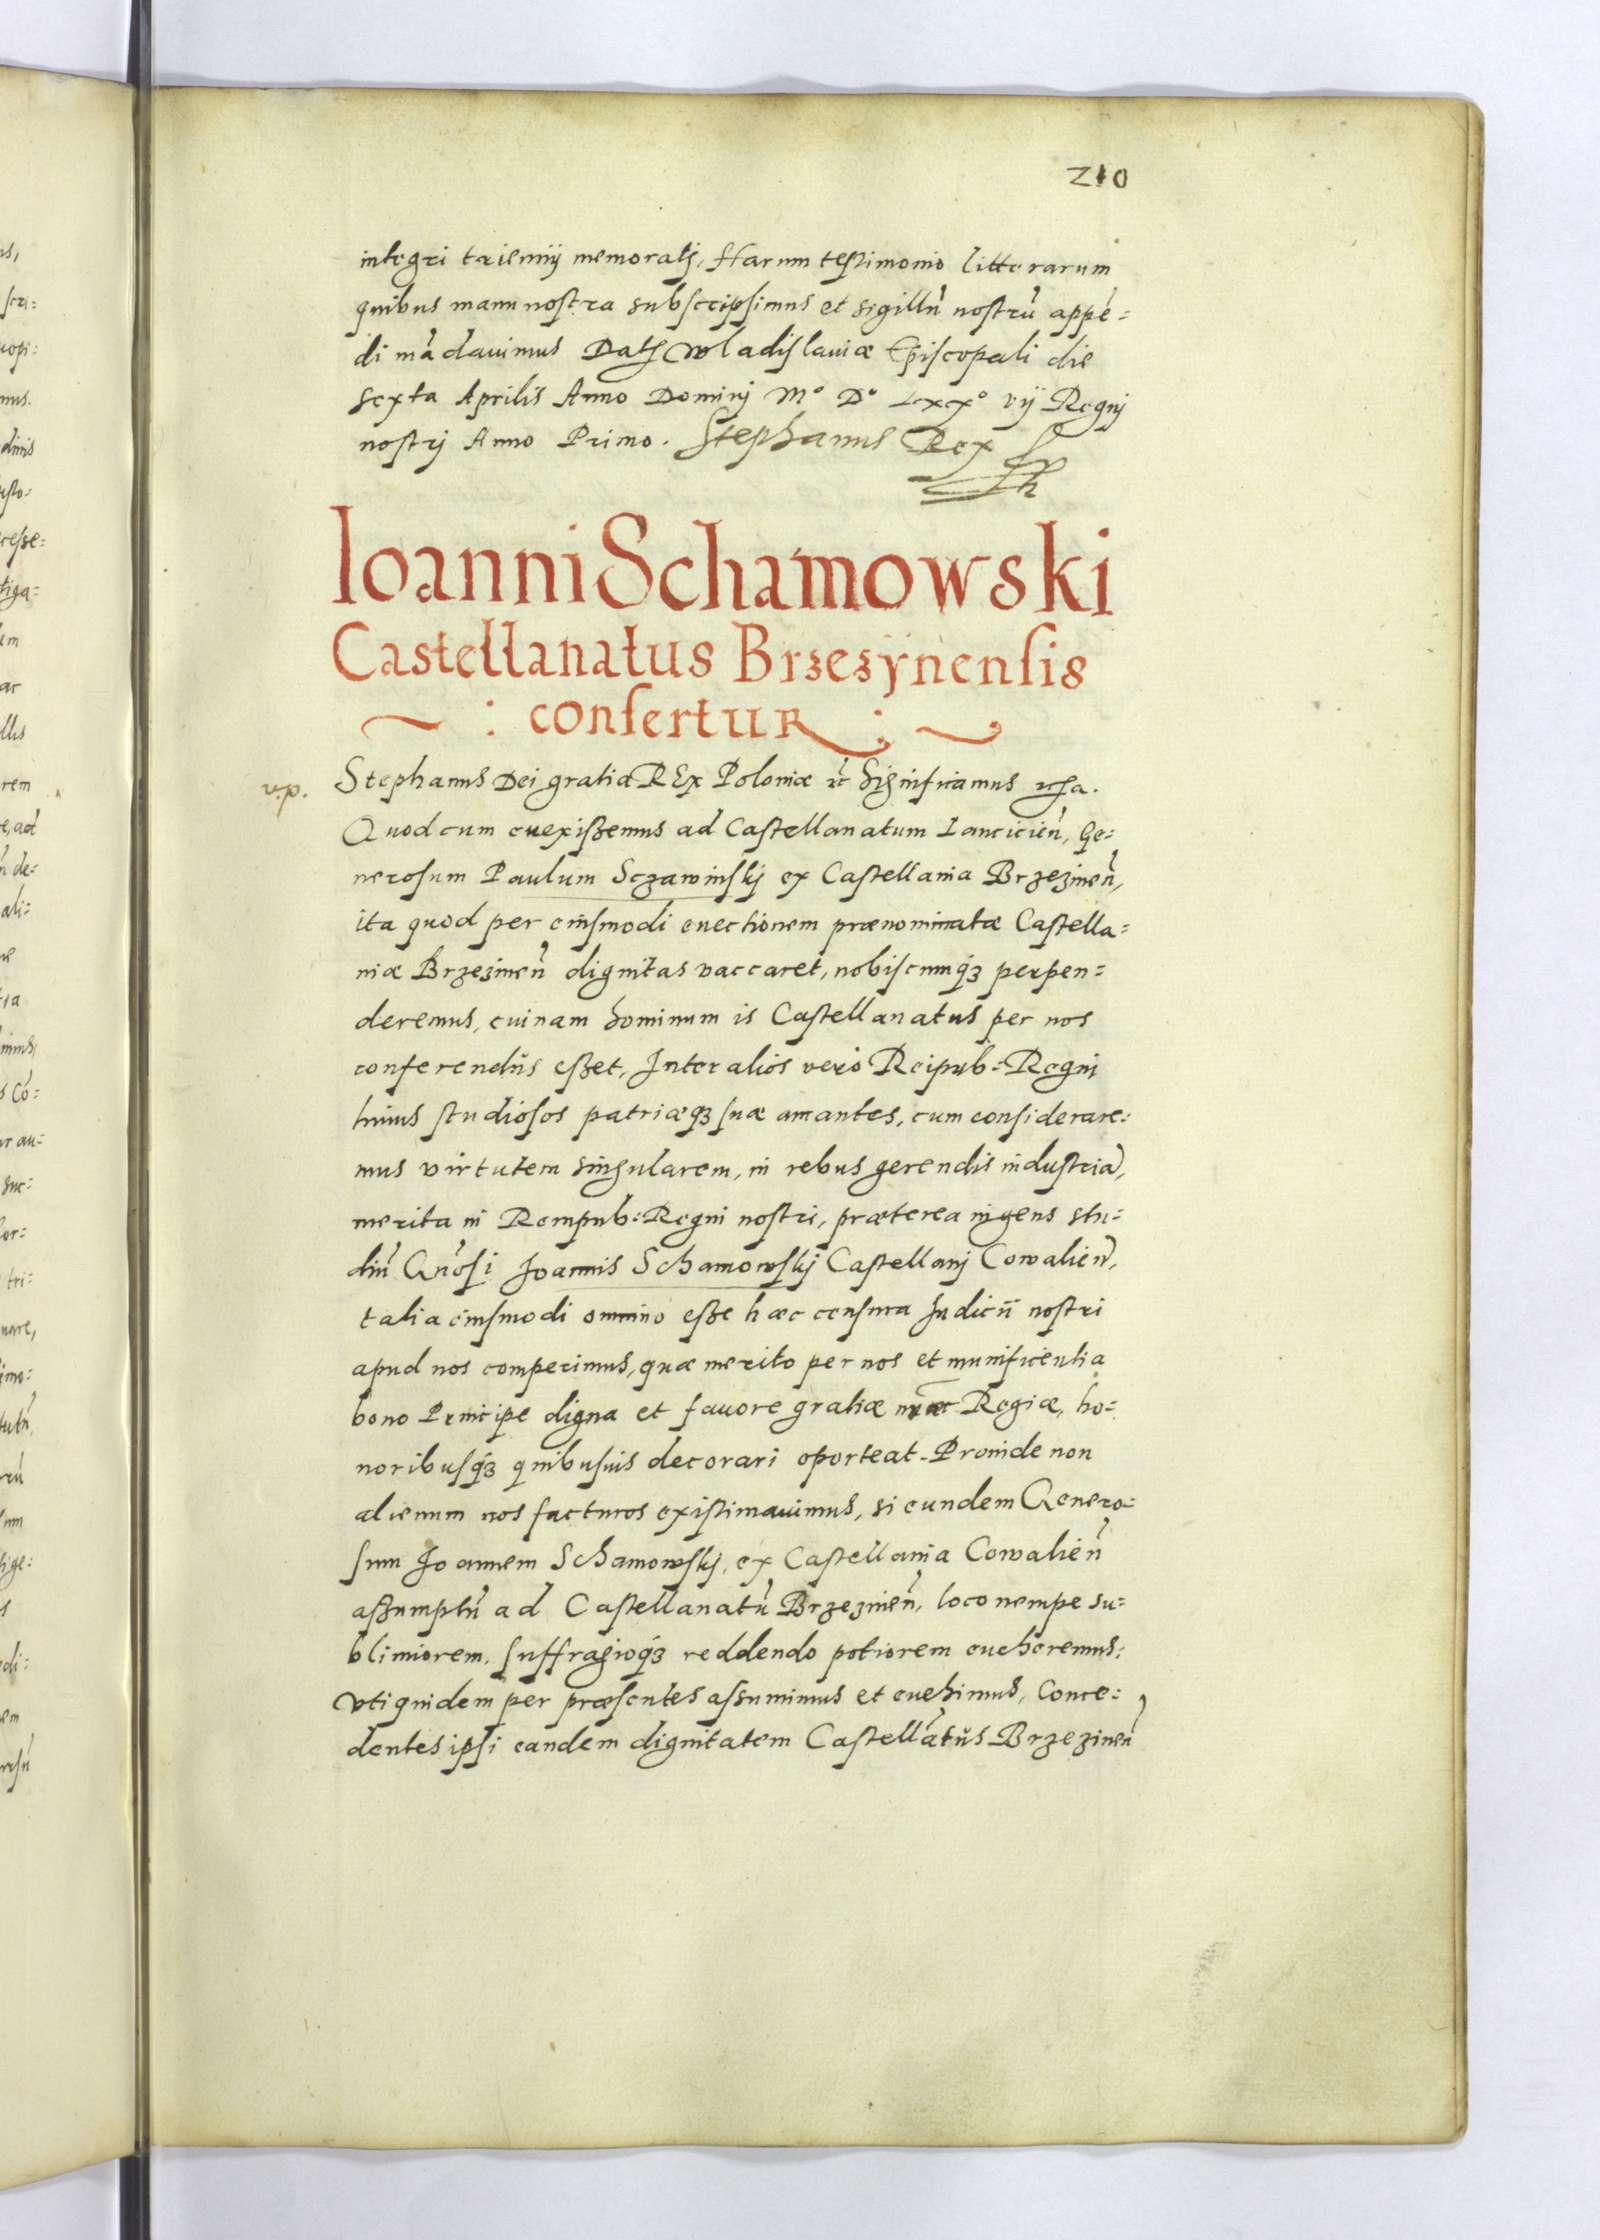 210
integri triennij memoratj. Harum testimonio litterarum
quibus manu nostra subscripsimus et sigillũ nostrũ appẽ=
di mãdauimus Datȝ Wladislauiæ Episcopali die
sexta Aprilis Anno Dominj Mº Dº Lxxº vij Regnj
nostrj Anno Primo. Stephanus Rex
Ioanni Schamowski
Castellanatus Brzezÿnensis
: confertur :
v.p.
Stephanus Dei gratia REx Poloniæ Significamus
Quod cum euexissemus ad Castellanatum Lancicieñ, Ge=
nerosum Paulum Sczawinskj ex Castellania Brzezineñ,
ita quod per eiusmodi euectionem prænominatæ Castella=
niæ Brzezineñ dignitas vaccaret, nobiscumqȝ perpen=
deremus, cuinam hominum is Castellanatus per nos
conferendus esset, Inter alios vero Reipub: Regni
huius studiosos patriæqȝ suæ amantes, cum considerare=
mus virtutem singularem, in rebus gerendis industriã,
merita in Rempub: Regni nostri, præterea ingens stu=
diũ Gñosi Joannis Schamowskj Castellanj Cowalieñ,
talia eiusmodi omnino esse hæc censura Iudicii nostri
apud nos comperimus, quæ merito per nos et munificentia
bono Principe digna et fauore gratiæ nræ Regiæ, ho=
noribusqȝ quibusuis decorari oporteat. Proinde non
alienum nos facturos existimauimus, si eundem Genero=
sum Joannem Schamowskj, ex Castellania Cowalieñ
assumptũ ad Castellanatũ Brzezineñ, loco nempe su=
blimiorem, suffragioqȝ reddendo potiorem eueheremus:
vti quidem per præsentes assumimus et euehimus, Conce=
dentes ipsi eandem dignitatem Castellãtus Brzezineñ